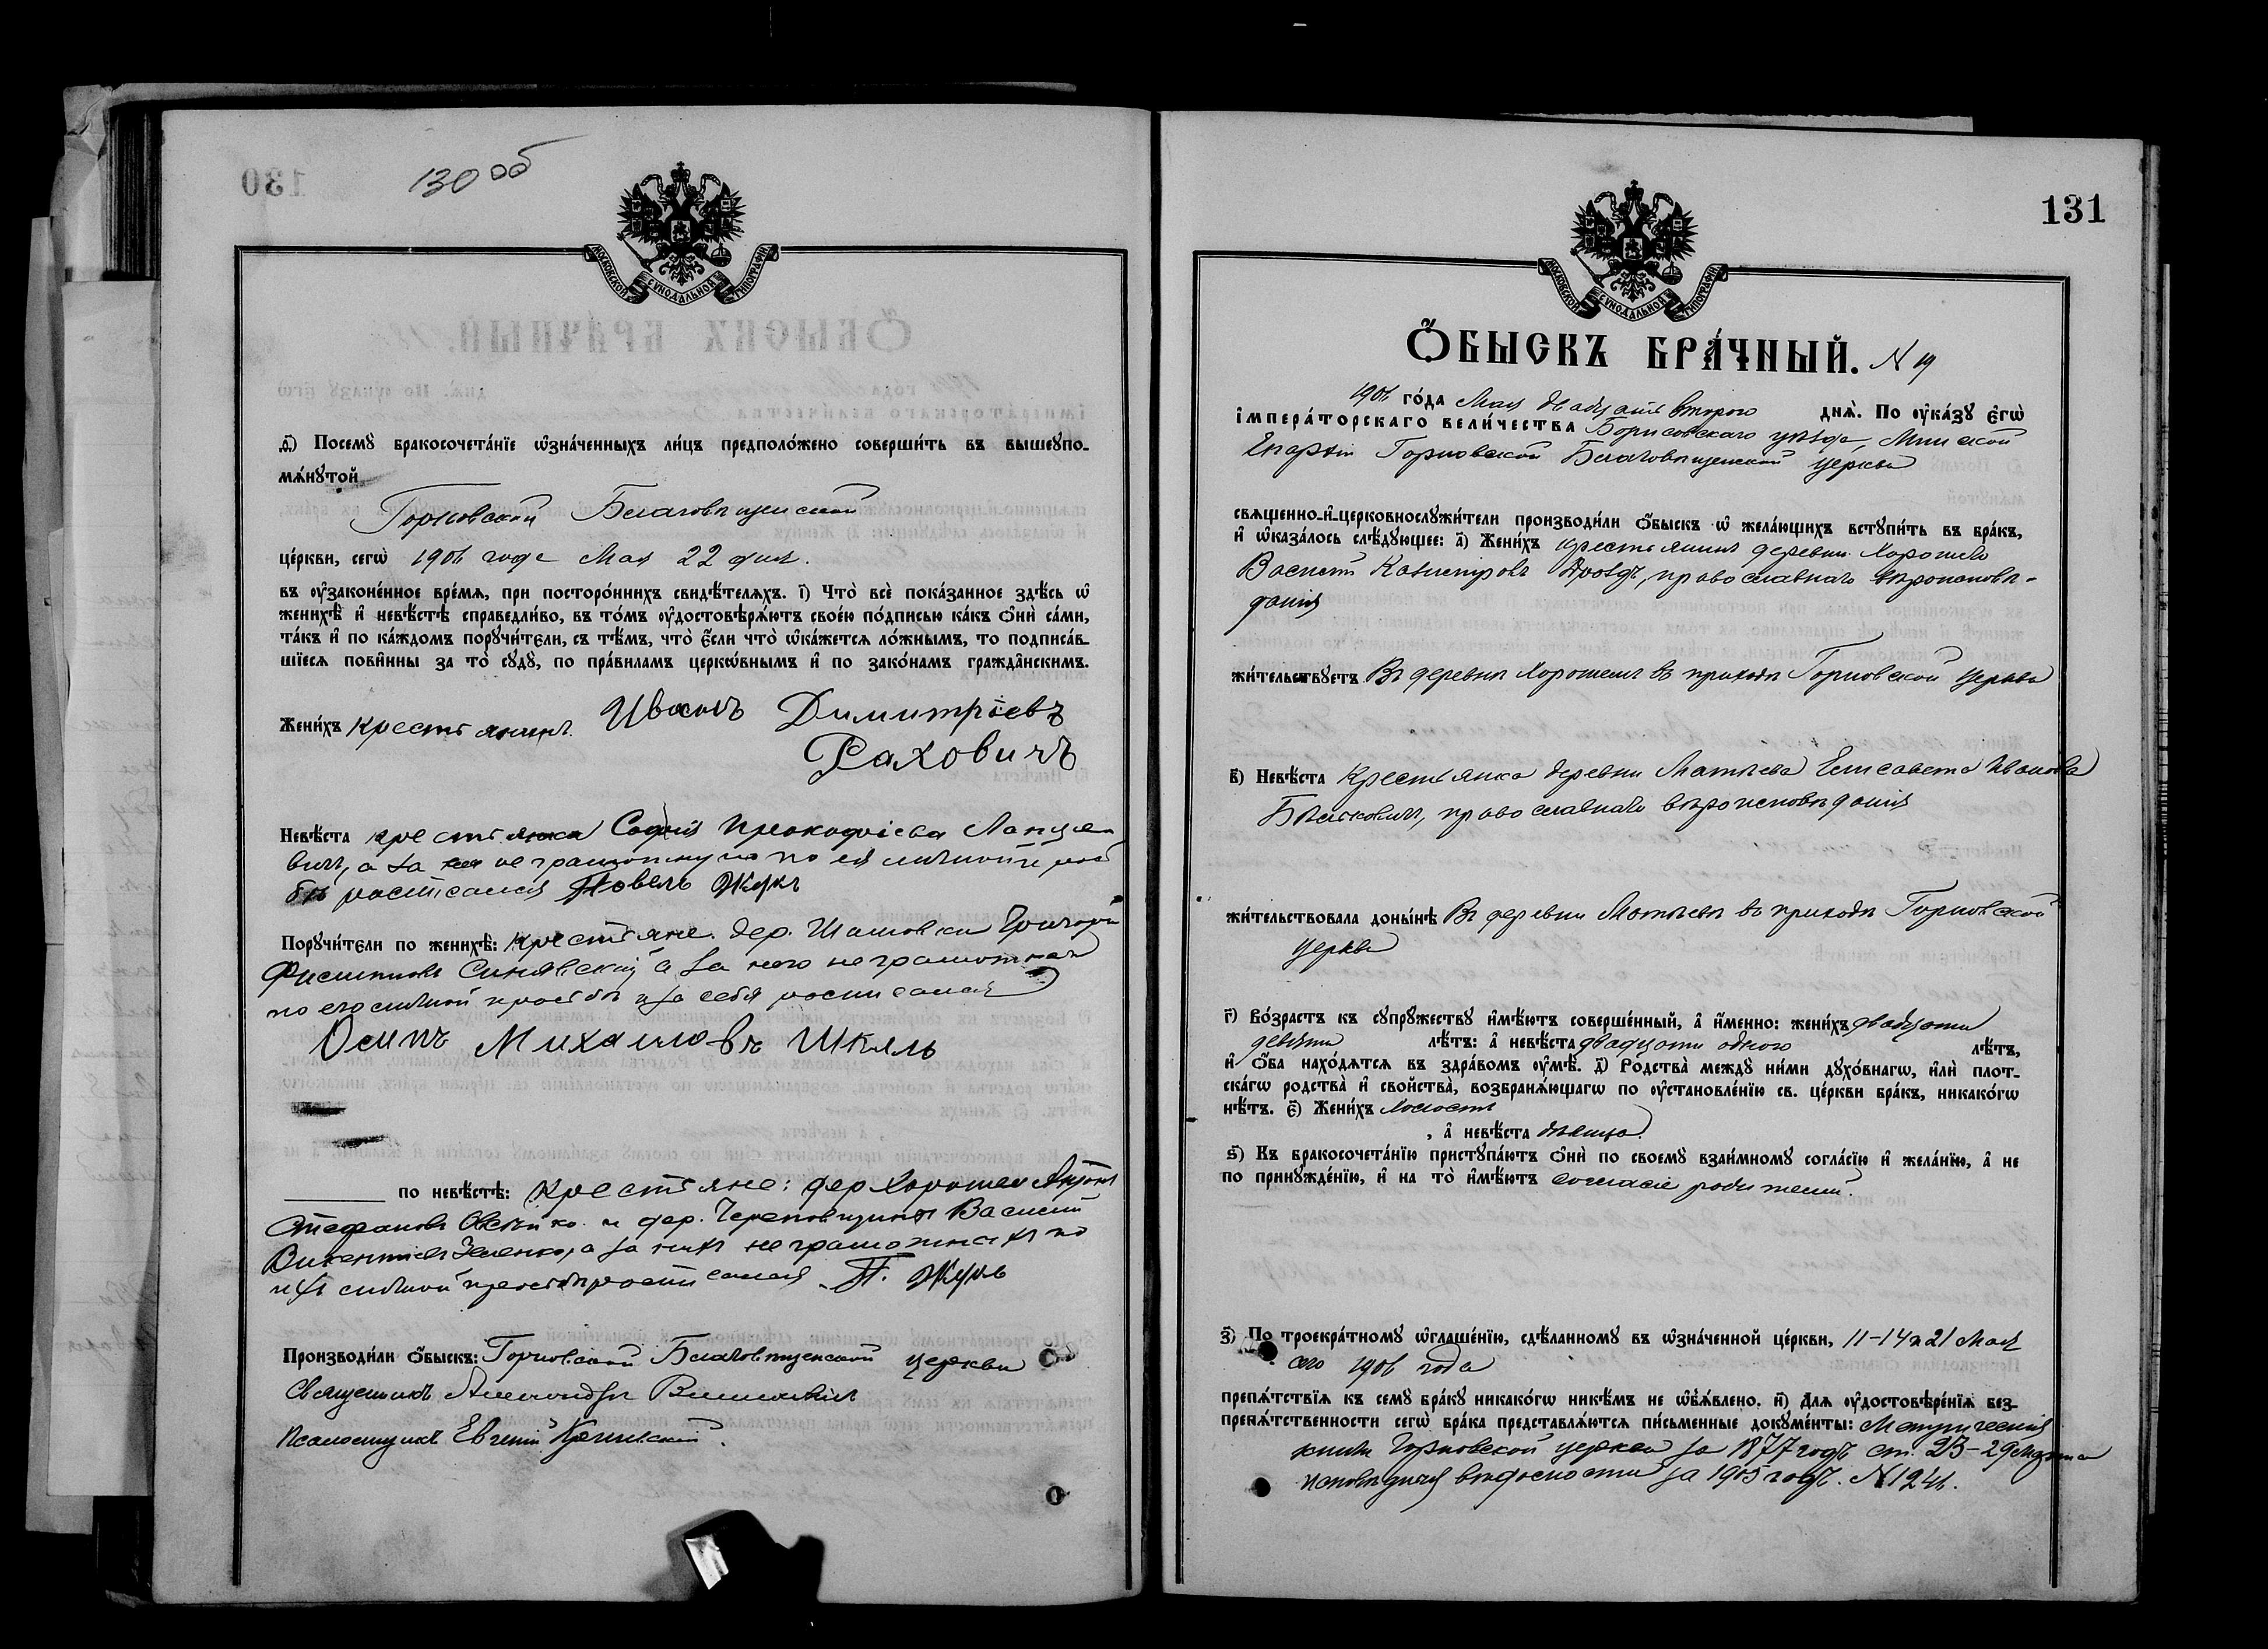 130 об
МОСКОВСКОЙ СѴНОДАЛЬНОЙ ТИПОГРАФІИ
ѳ҃) Посемꙋ бракосочета́нїе ѡ҆зна́ченныхъ ли́цъ предполо́жено соверши́ть въ вышеꙋпо-
мѧ́нꙋтой
Горновской Благовѣщенской
це́ркви, сегѡ̀ 1906 года Мая 22 дня.
въ ᲂу҆законе́нное вре́мѧ, при посторо́ннихъ свидѣ́телѧхъ. і҃) Что̀ всѐ пока́занное здѣ́сь ѡ҆
женихѣ̀ и҆ невѣ́стѣ справедли́во, въ то́мъ ᲂу҆достовѣрѧ́ютъ свое́ю по́дписью ка́къ ѻ҆нѝ са́ми,
та́къ и҆ по ка́ждомъ порꙋчи́тели, съ тѣ́мъ, что̀ є҆́сли что̀ ѡ҆ка́жетсѧ ло́жнымъ, то подписа́в-
шїесѧ пови́нны за то̀ сꙋдꙋ̀, по пра́виламъ церкѡ́внымъ и҆ по зако́намъ гражда́нскимъ.
Жени́хъ крестьянинъ Иванъ Димитріевъ
Раховичъ
Невѣ́ста крестьянка Софія Прокофіева
вичъ, а за неграмотную по ея личной прось
бѣ росписался Павелъ Жукъ
Порꙋчи́тели по женихѣ̀: крестьяне дер. Григорій
а за него неграмотнаго
по его личной просьбѣ и за себя росписался
Осипъ Михаиловъ Шкляь
по невѣ́стѣ: крестьяне: дер Хорошев Антонъ
Стефановъ и дер. Василій
а за нихъ неграмотныхъ по
ихъ личной просьбѣ росписался П. Жукъ
Производи́ли ѻ҆́быскъ: Горновской Благовѣщенской церкви
Священникъ Александръ
Псаломщикъ Евгеній
131
МОСКОВСКОЙ СѴНОДАЛЬНОЙ ТИПОГРАФІИ
Ѻ҆́БЫСКЪ БРА́ЧНЫЙ. N 19
1906 го́да Мая двадцать второго днѧ̀. По ᲂу҆ка́зꙋ є҆гѡ̀
і҆мпера́торскаго вели́чества Борисовскаго уѣзда, Минской
Епархіи Горновской Благовѣщенской церкви
свѧщенно-и҆-церковнослꙋжи́тели производи́ли ѻ҆́быскъ ѡ҆ жела́ющихъ встꙋпи́ть въ бра́къ,
и҆ ѡ҆каза́лось слѣ́дꙋющее: а҃) Жени́хъ крестьянинъ деревни Хорошево
Василій Казиміровъ Дроздъ, православнаго вѣроисповѣ-
данія
жи́тельствꙋетъ Въ деревнѣ Хорошевѣ въ приходѣ Горновской церкви
в҃) Невѣ́ста Крестьянка деревни Матьева Елисавета Иванова
православнаго вѣроисповѣданія
жи́тельствовала доны́нѣ Въ деревни Матьевѣ въ приходѣ Горновской
церкви
г҃) Во́зрастъ къ сꙋпрꙋ́жествꙋ и҆мѣ́ютъ соверше́нный, а҆ и҆́менно: жени́хъ двадцати
девяти лѣ́тъ: а҆ невѣ́ста двадцати одного лѣ́тъ,
и҆ ѻ҆́ба нахо́дѧтсѧ въ здра́вомъ ᲂу҆мѣ̀. д҃) Родства̀ междꙋ ни́ми дꙋхо́внагѡ, и҆лѝ плот-
ска́гѡ родства̀ и҆ сво́йства̀, возбранѧ́ющагѡ по ᲂу҆становле́нїю св. це́ркви бра́къ, никако́гѡ
нѣ́тъ. є҃) Жени́хъ холостъ
, а҆ невѣ́ста дѣвица.
ѕ҃) Къ бракосочета́нїю пристꙋпа́ютъ ѻ҆нѝ по своемꙋ взаи́мномꙋ согла́сїю и҆ жела́нїю, а҆ не
по принꙋжде́нїю, и҆ на то̀ и҆мѣ́ютъ согласіе родителей.
з҃) По троекра́тномꙋ ѡ҆глаше́нїю, сдѣ́ланномꙋ въ ѡ҆зна́ченной це́ркви, 11-14 и 21 Мая
сего 1906 года
препѧ́тствїѧ къ семꙋ̀ бра́кꙋ никако́гѡ никѣ́мъ не ѡ҆б̾ѧ́влено. и҃) Длѧ ᲂу҆достовѣре́нїѧ без-
препѧ́тственности сегѡ̀ бра́ка представлѧ́ютсѧ пи́сьменные докꙋме́нты: Метрическія
книги Горновской церкви за 1877 годъ ст. 23 - 29 Марта
исповѣдная вѣдомость за 1905 годъ. N 1241.